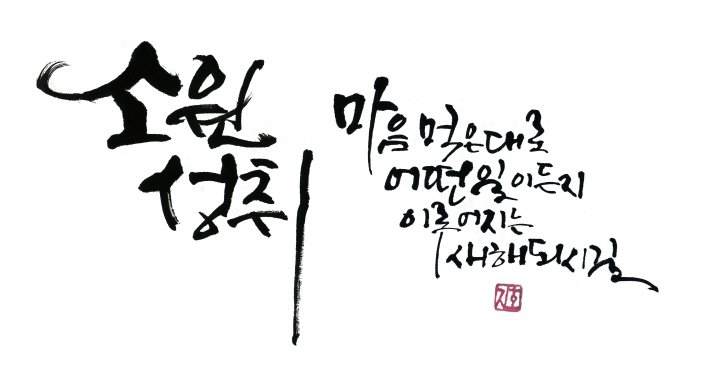 소원
성취
마음 먹은대로
어떤일이든지
이루어지는
새해되시길